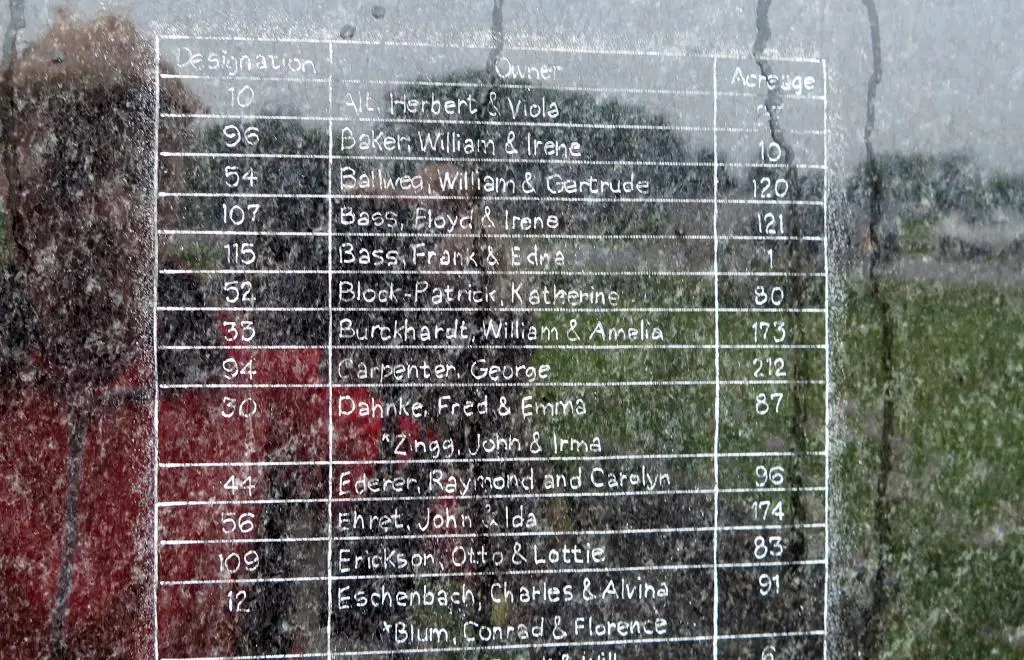 Designation Owner Acreage
10 Alt, Herbert & Viola
96 Baker, William & Irene 10
54 Ballweg, William & Gertrude 120
107 Bass, Floyd & Irene 121
115 Bass, Frank & Edna 1
52 Block-Patrick, Katherine 80
33 Burckhardt, William & Amelia 173
94 Carpenter, George 212
30 Dahnke, Fred & Emma 87
*Zingg, John & Irma
44 Ederer, Raymond and Carolyn 96
56 Ehret, John & Ida 174
109 Erickson, Otto & Lottie 83
12 Eschenbach, Charles & Alvina 91
*Blum, Conrad & Florence